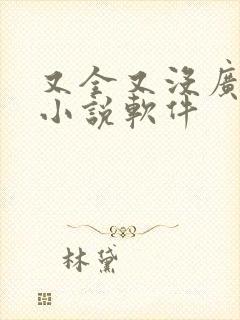 又全又没廣
小說軟件
林黛